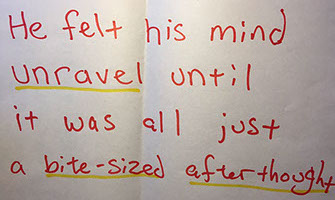 He felt his mind
unravel until
it was all just
a bite-sized afterthought